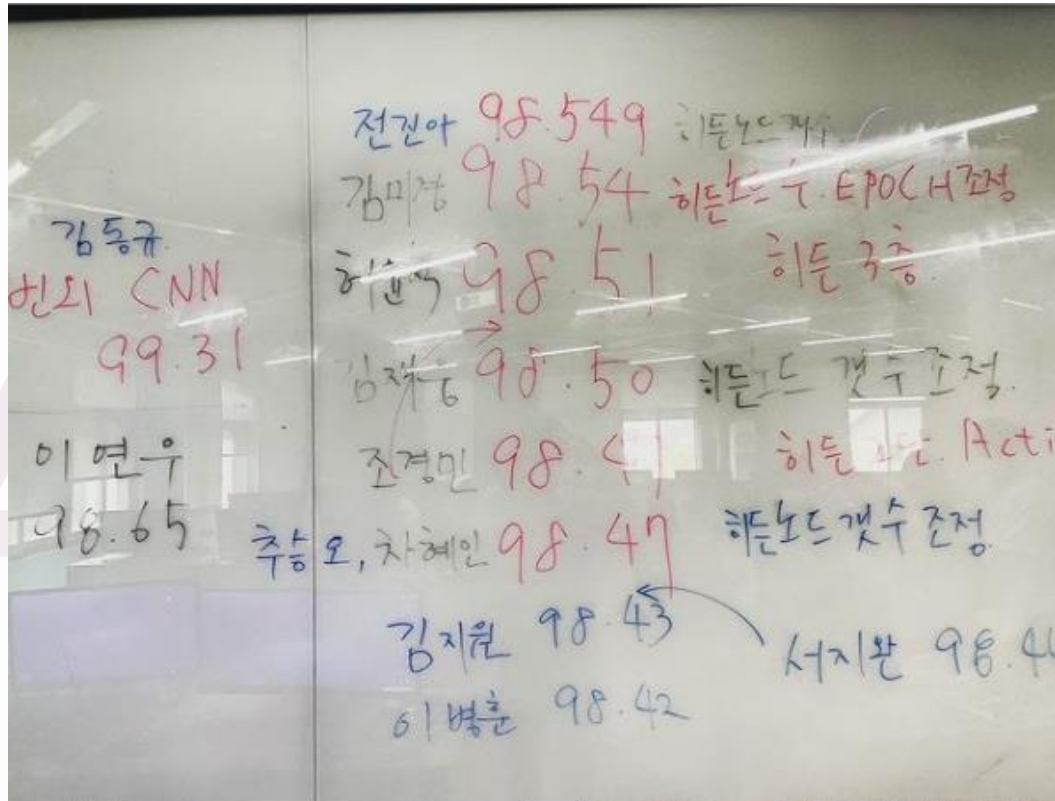 김동규.
번외 CNN
99.31
이연우
98.65
전진아 98.549 히든노드갯수
김미정 98.54 히든노드 수. EPOCH조정
98.51 히든 3층.
98.50 히든노드 갯수조정.
조경민 98.47 히든 Acti
추승오, 차혜인 98.47 히든노드갯수조정
김지원 98.43
서지완 98.4
이병훈 98.42